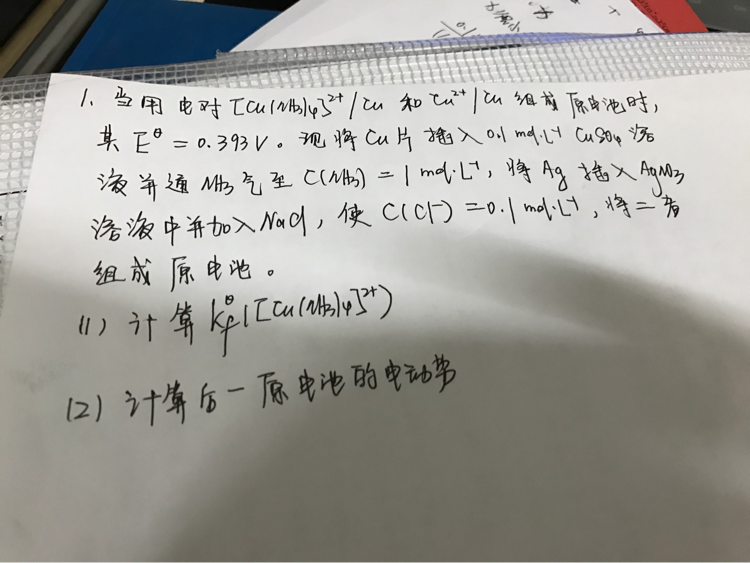 1、当用电对[Cu(NH₃)₄]²⁺/Cu 和 Cu²⁺/Cu 组成原电池时,
其 E^θ = 0.393V。现将Cu片插入0.1 mol·L⁻¹ CuSO₄ 溶
液并通NH₃气至 C(NH₃) = 1 mol·L⁻¹, 将 Ag 插入 AgNO₃
溶液中并加入NaCl, 使 C(Cl⁻) = 0.1 mol·L⁻¹, 将二者
组成原电池。
(1) 计算 K_f^θ([Cu(NH₃)₄]²⁺)
(2) 计算后一原电池的电动势